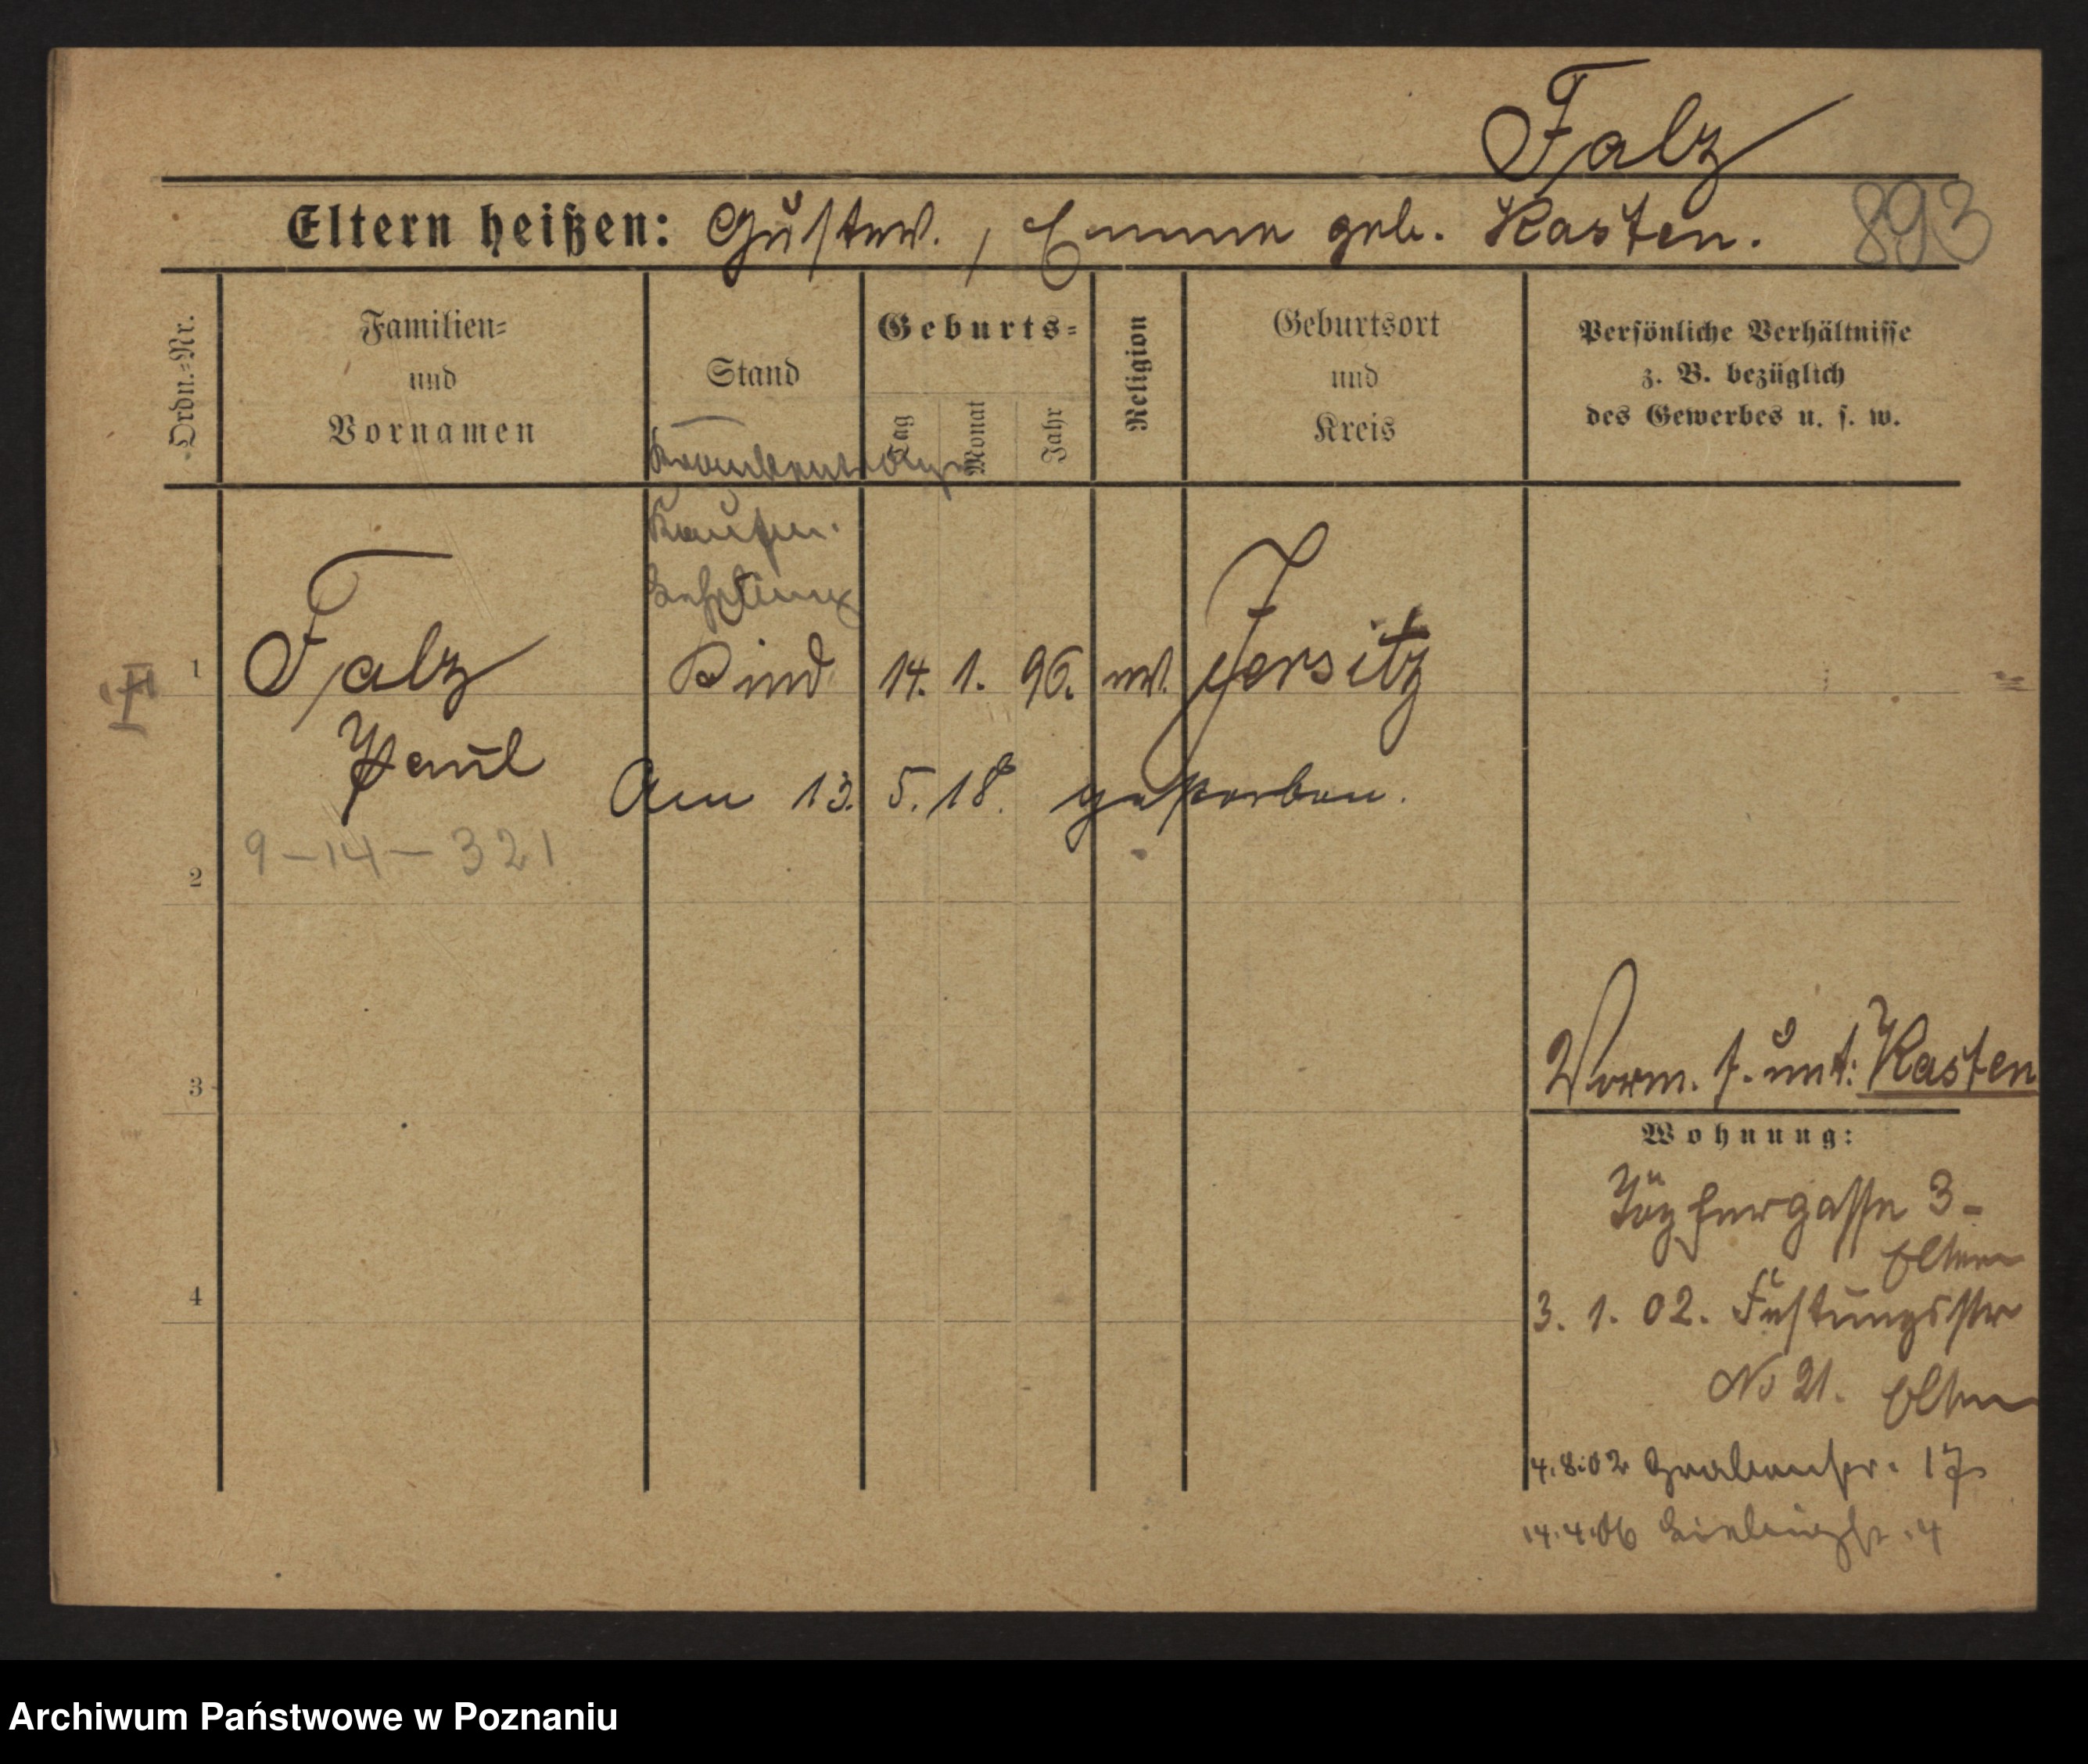 Falz
Eltern heißen: Gustav., Emma geb. Kasten. 893
Ordn.-Nr.
Familien-
und
Vornamen
Stand
Geburts-
Tag
Monat
Jahr
Religion
Geburtsort
und
Kreis
Persönliche Verhältnisse
z. B. bezüglich
des Gewerbes u. s. w.
Kaufm.
Lehrling
1 Falz Kind 14. 1. 96. ev. Jersitz
Paul
Am 13. 5. 18. gestorben.
9-14-321
2
3
Vorm. s. unt: Kasten
Wohnung:
4
Töpfergasse 3-
Eltern
3. 1. 02. Festungsstr
No 21. Eltern
4.8.02 Grabenstr. 17
14.4.06 4
Archiwum Państwowe w Poznaniu